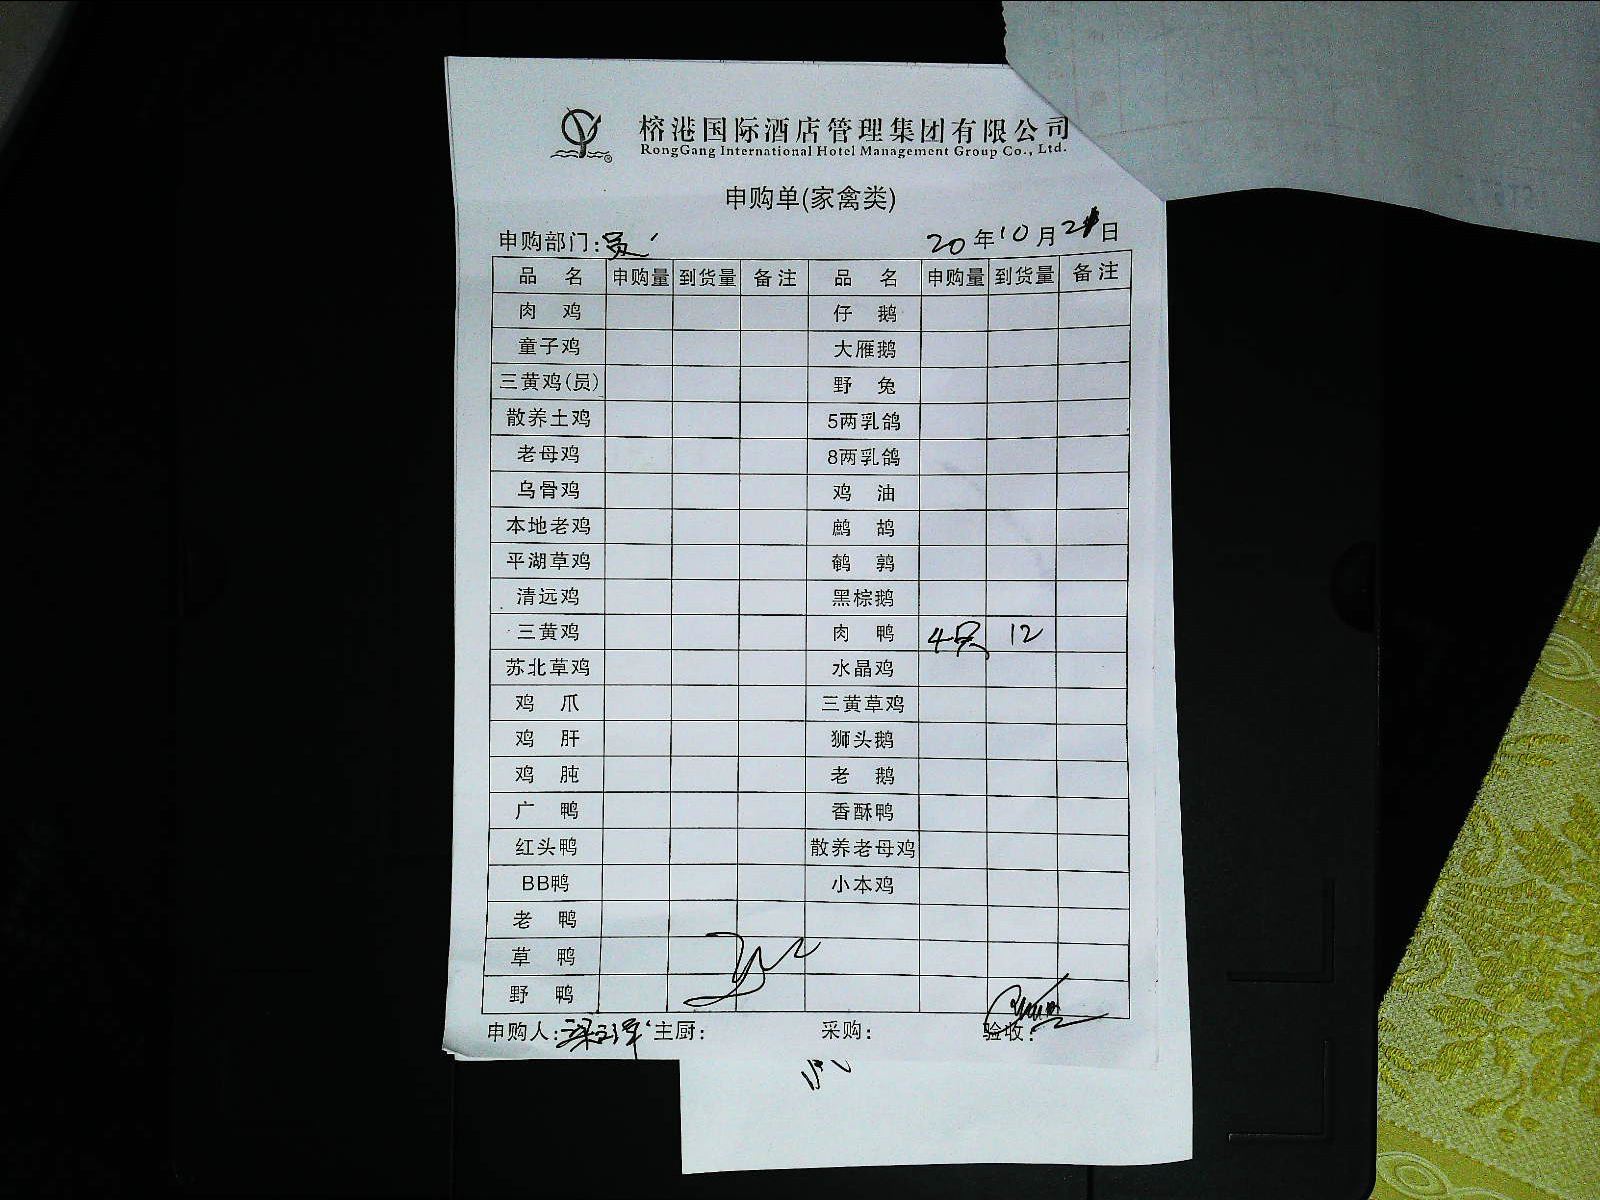 榕港国际酒店管理集团有限公司
RongGang International Hotel Management Group Co., Ltd.
申购单(家禽类)
申购部门:员 20年10月21日
品 名 申购量 到货量 备注 品 名 申购量 到货量 备注
肉 鸡 仔 鹅
童子鸡 大雁鹅
三黄鸡(员) 野 兔
散养土鸡 5两乳鸽
老母鸡 8两乳鸽
乌骨鸡 鸡 油
本地老鸡 鹧 鸪
平湖草鸡 鹌 鹑
清远鸡 黑棕鹅
三黄鸡 肉 鸭 4只 12
苏北草鸡 水晶鸡
鸡 爪 三黄草鸡
鸡 肝 狮头鹅
鸡 肫 老 鹅
广 鸭 香酥鸭
红头鸭 散养老母鸡
BB鸭 小本鸡
老 鸭
草 鸭
野 鸭
申购人: 主厨: 采购: 验收: